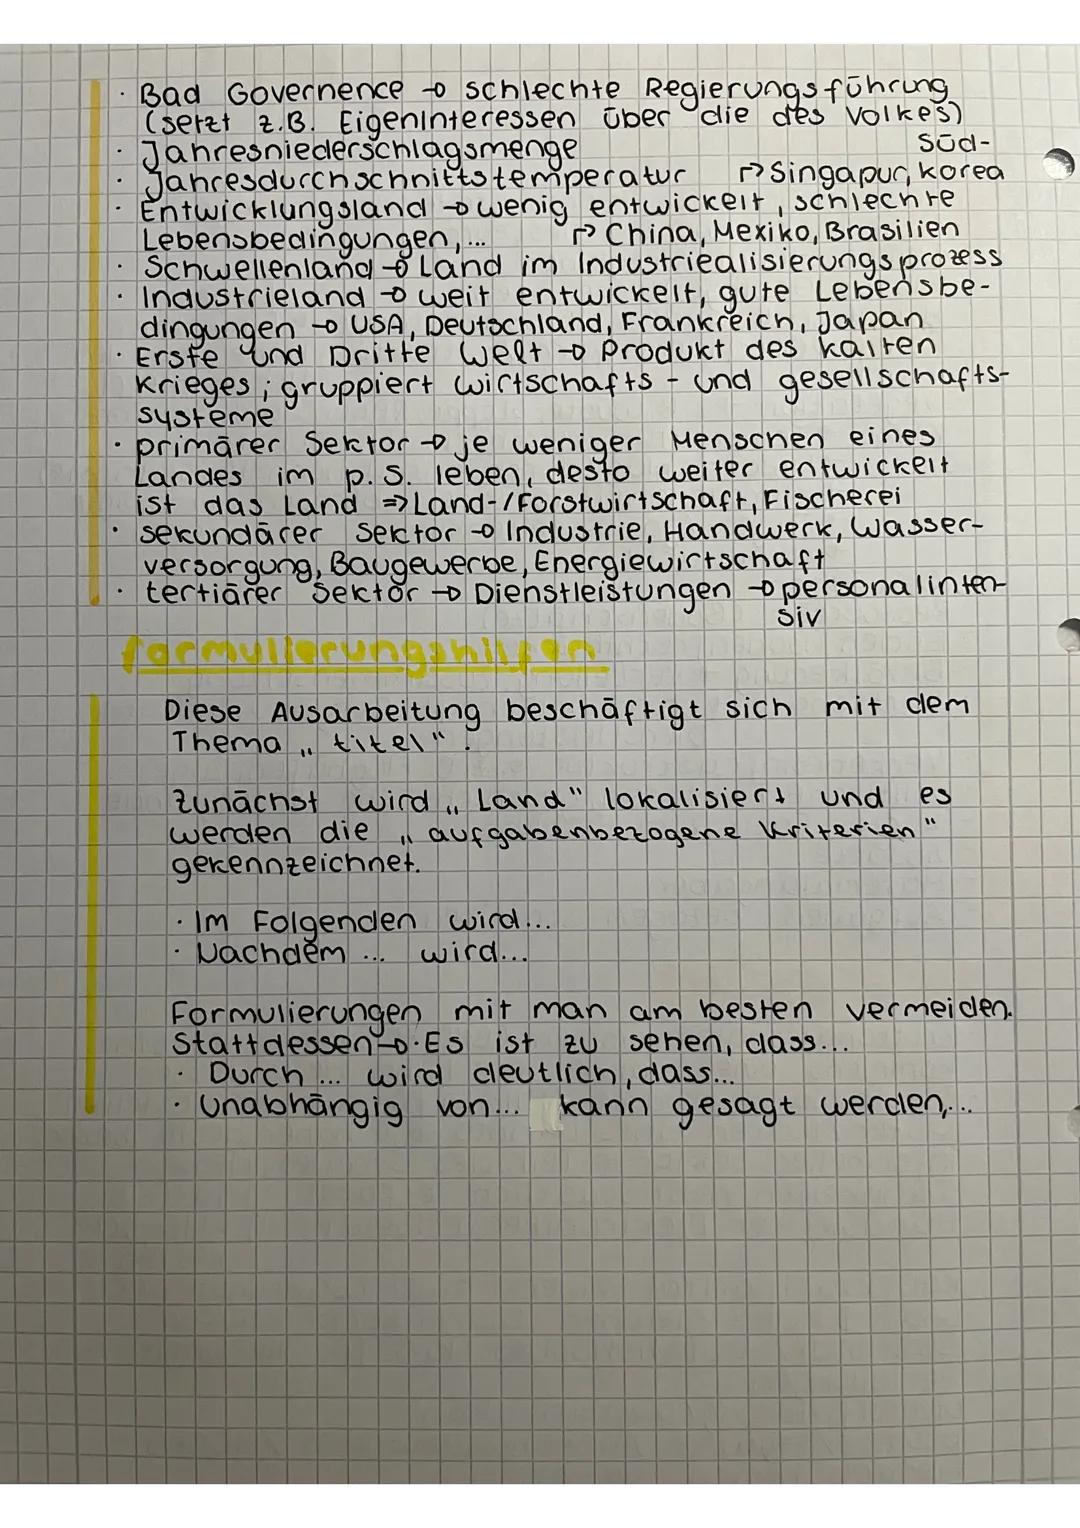 · Bad Governence → schlechte Regierungsführung
(setzt z.B. EigenInteressen über die des Volkes)
· Jahresniederschlagsmenge
Süd-
· Jahresdurchschnittstemperatur ↱ Singapur, korea
· Entwicklungsland → wenig entwickelt, schlechte
Lebensbedingungen,... ↱ China, Mexiko, Brasilien
· Schwellenland → Land im Industriealisierungsprozess
· Industrieland → weit entwickelt, gute Lebensbe-
dingungen → USA, Deutschland, Frankreich, Japan
· Erste und Dritte Welt → Produkt des kalten
Krieges; gruppiert wirtschafts- und gesellschafts-
systeme
· primärer Sektor → je weniger Menschen eines
Landes im p.S. leben, desto weiter entwickelt
ist das Land => Land-/Forstwirtschaft, Fischerei
· sekundärer Sektor → Industrie, Handwerk, Wasser-
versorgung, Baugewerbe, Energiewirtschaft
· tertiärer Sektor → Dienstleistungen → personalinten-
siv
formulierungshilfen
Diese Ausarbeitung beschäftigt sich mit dem
Thema „titel“.
Zunächst wird „Land“ lokalisiert und es
werden die „aufgabenbezogene Kriterien“
gekennzeichnet.
· Im Folgenden wird...
· Nachdem ... wird...
Formulierungen mit man am besten vermeiden.
Stattdessen → · Es ist zu sehen, dass...
· Durch ... wird deutlich, dass...
· Unabhängig von... kann gesagt werden,...